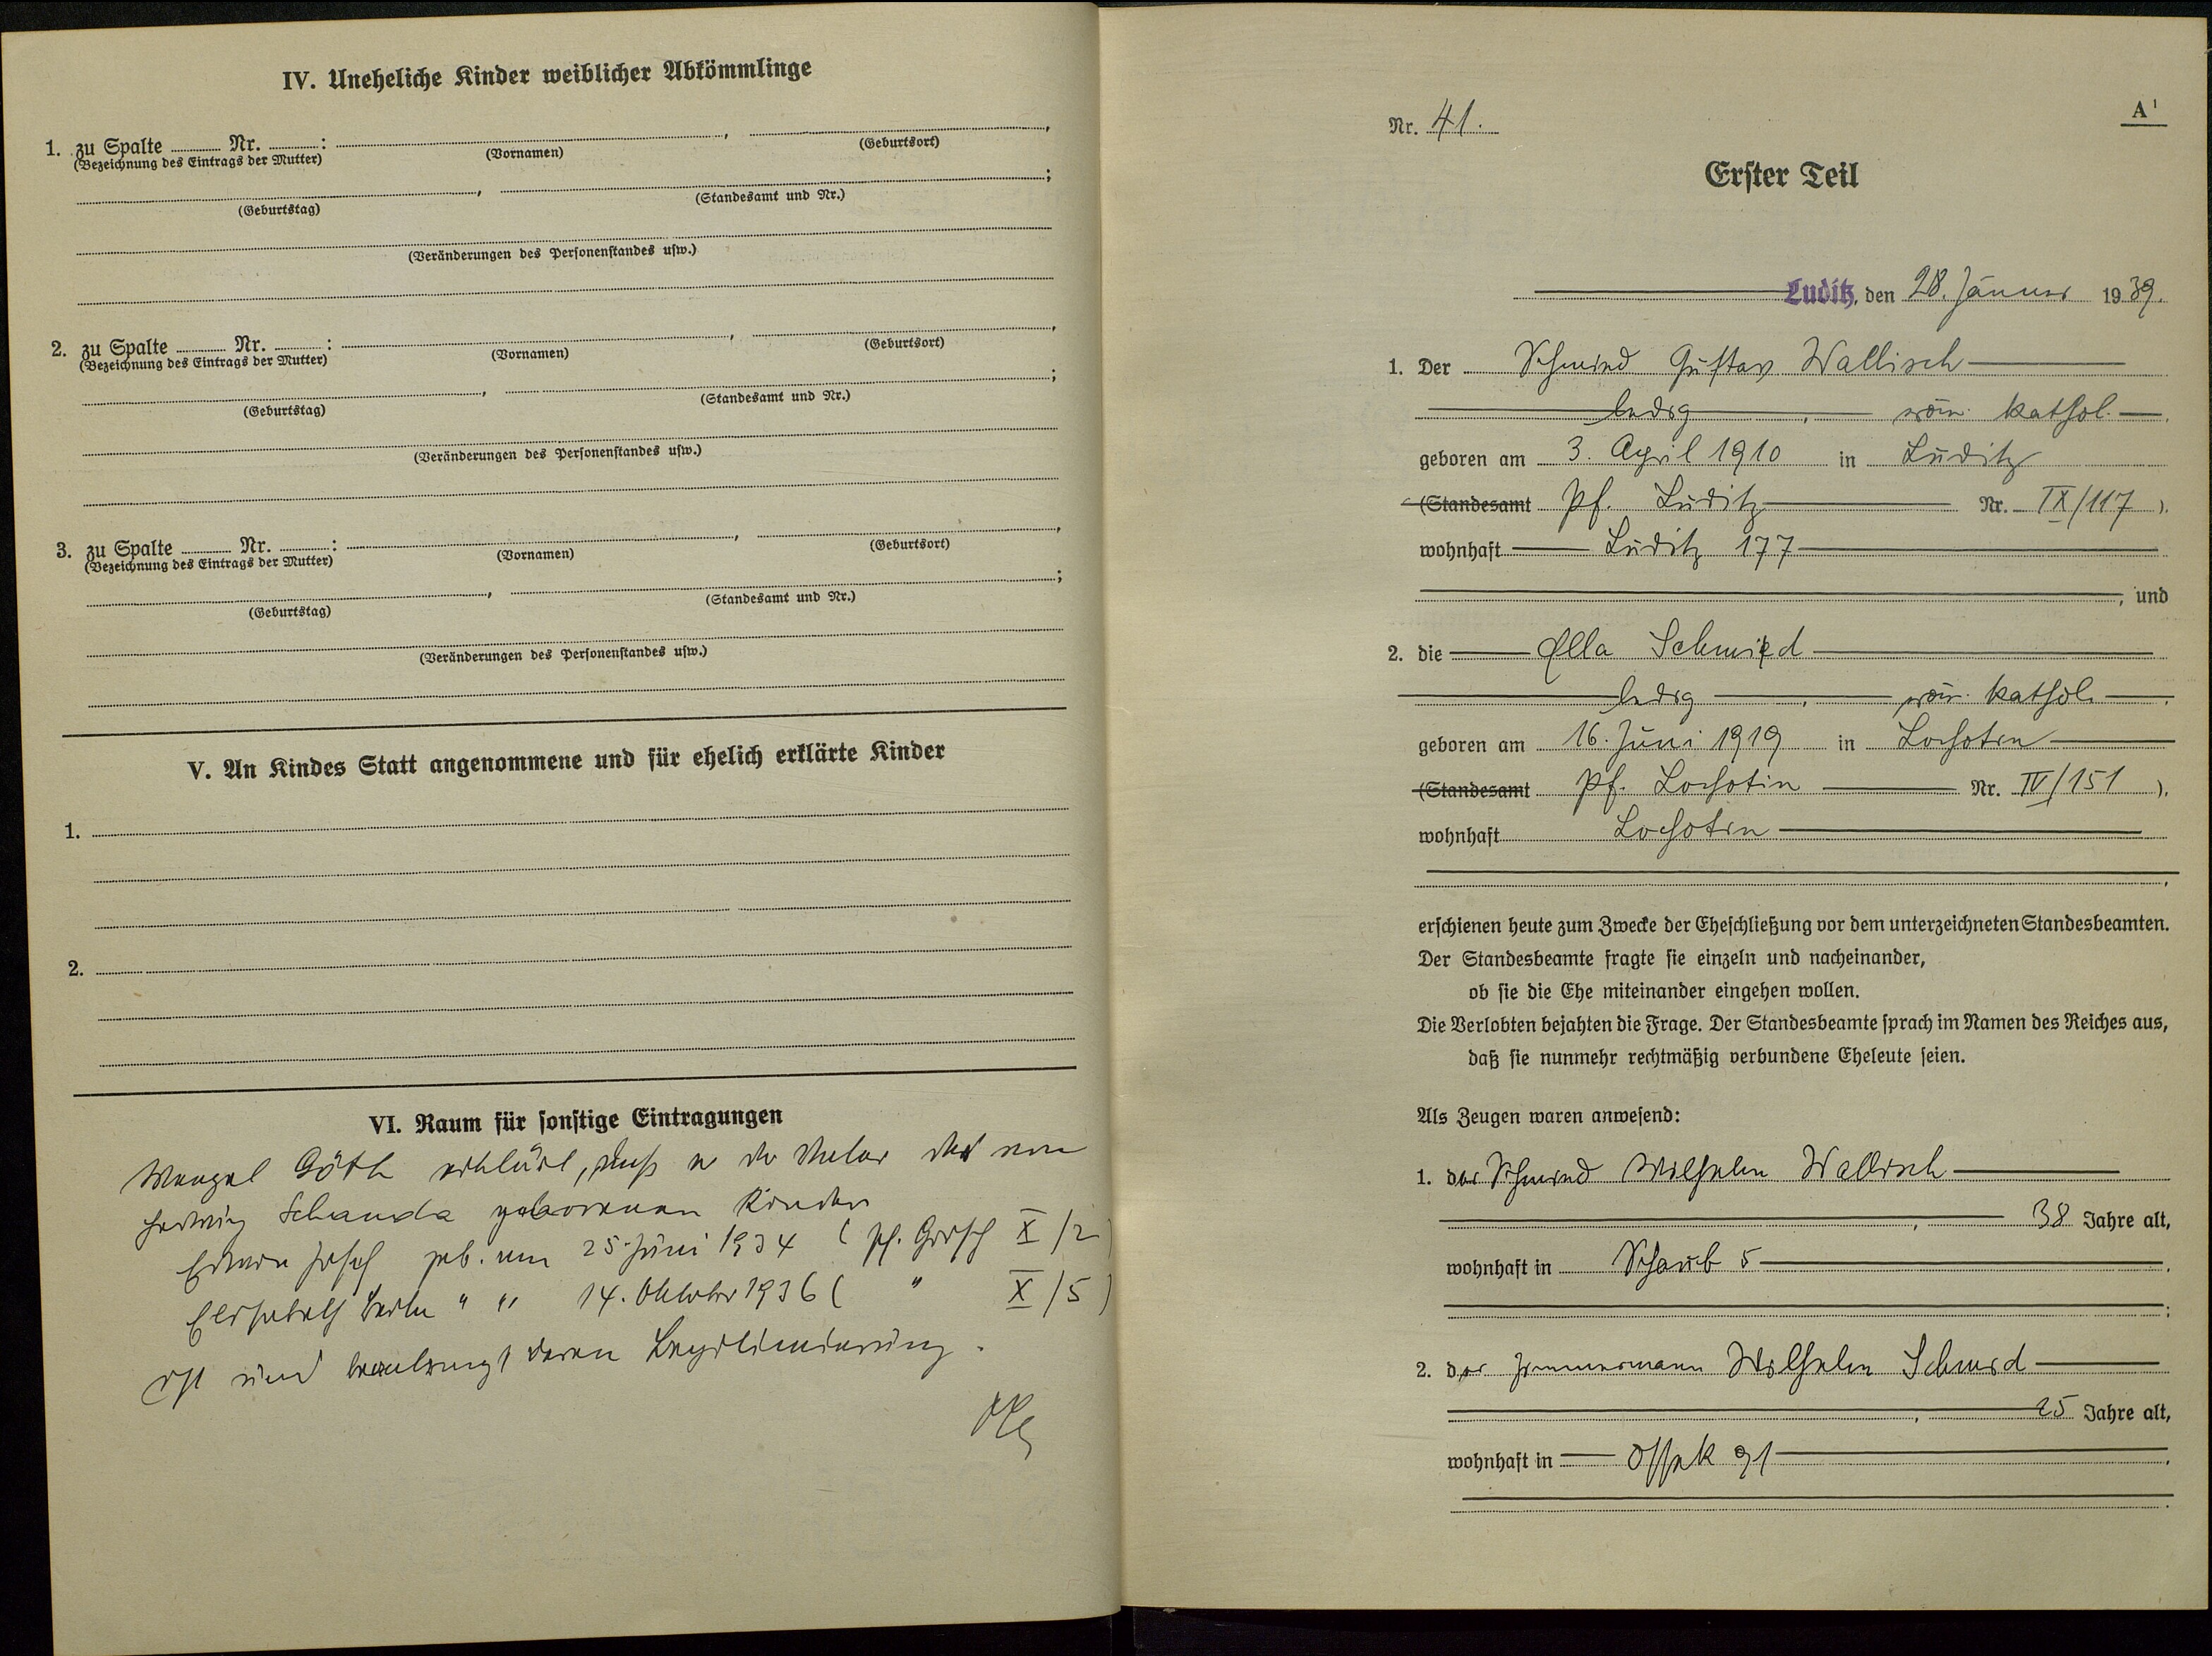 IV. Uneheliche Kinder weiblicher Abkömmlinge
1. zu Spalte ........ Nr. ........: ........, ........,
(Bezeichnung des Eintrags der Mutter) (Vornamen) (Geburtsort)
........, ........;
(Geburtstag) (Standesamt und Nr.)
(Veränderungen des Personenstandes usw.)
2. zu Spalte ........ Nr. ........: ........, ........,
(Bezeichnung des Eintrags der Mutter) (Vornamen) (Geburtsort)
........, ........;
(Geburtstag) (Standesamt und Nr.)
(Veränderungen des Personenstandes usw.)
3. zu Spalte ........ Nr. ........: ........, ........,
(Bezeichnung des Eintrags der Mutter) (Vornamen) (Geburtsort)
........, ........;
(Geburtstag) (Standesamt und Nr.)
(Veränderungen des Personenstandes usw.)
V. An Kindes Statt angenommene und für ehelich erklärte Kinder
1.
2.
VI. Raum für sonstige Eintragungen
Wenzel Göth erklärt, daß er der Vater der von
Hedwig Schanda geborenen Kinder
Erwin Josef geb. am 25. Juni 1934 (Pf. X/2)
Elisabeth " " 14. Oktober 1936 ( " X/5)
ist und beantragt deren Legitimierung.
Nr. 41.
A¹
Erster Teil
Luditz, den 28. Jänner 1939.
1. Der Schmied Gustav Wallisch
ledig, röm. kathol.
geboren am 3. April 1910 in Luditz
(Standesamt Pf. Luditz Nr. IX/117).
wohnhaft Luditz 177
, und
2. die Ella Schmied
ledig, röm. kathol.
geboren am 16. Juni 1919 in Lochotin
(Standesamt Pf. Lochotin Nr. IV/151),
wohnhaft Lochotin
,
erschienen heute zum Zwecke der Eheschließung vor dem unterzeichneten Standesbeamten.
Der Standesbeamte fragte sie einzeln und nacheinander,
ob sie die Ehe miteinander eingehen wollen.
Die Verlobten bejahten die Frage. Der Standesbeamte sprach im Namen des Reiches aus,
daß sie nunmehr rechtmäßig verbundene Eheleute seien.
Als Zeugen waren anwesend:
1. der Schmied Wilhelm Wallisch
, 38 Jahre alt,
wohnhaft in Schaub 5
;
2. der Zimmermann Wilhelm Schmid
, 25 Jahre alt,
wohnhaft in Ossek 91
.